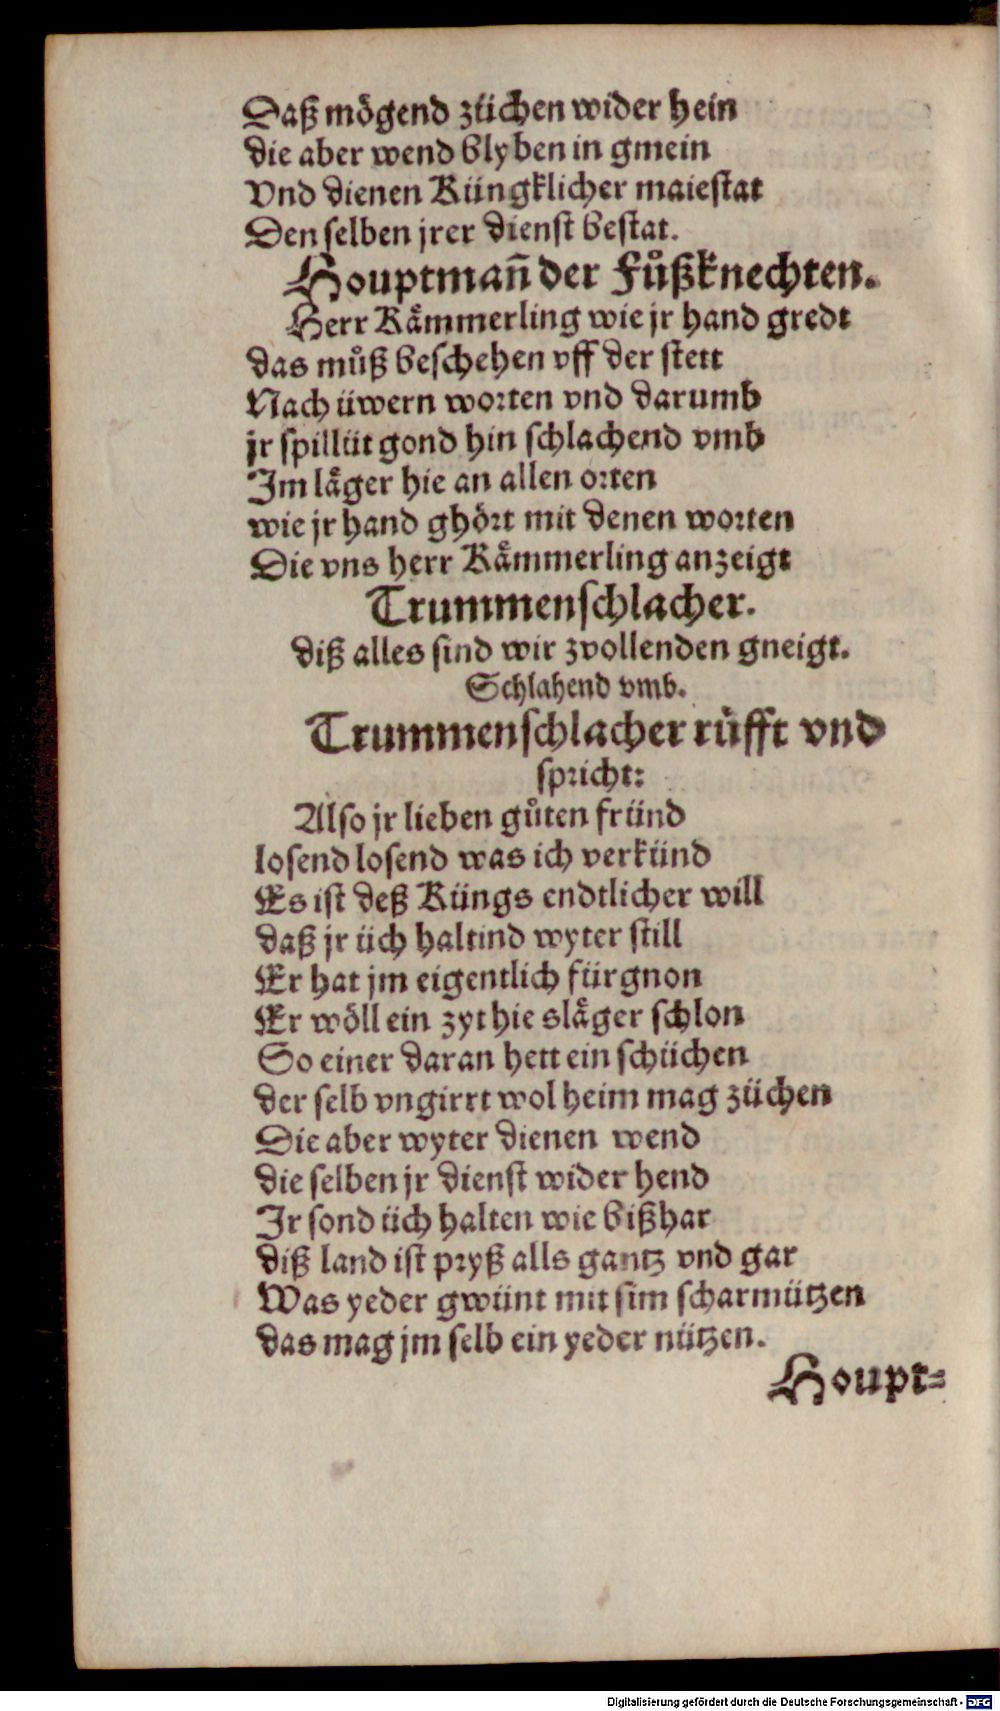 Daß mögend züchen wider hein
die aber wend blyben in gmein
Vnd dienen Küngklicher maiestat
Den selben jrer dienst bestat.
Houptmañ der Fůßknechten.
Herr Kåmmerling wie jr hand gredt
das můß beschehen vff der stett
Nach üwern worten vnd darumb
jr spillüt gond hin schlachend vmb
Im låger hie an allen orten
wie jr hand ghört mit denen worten
Die vns herr Kåmmerling anzeigt
Trummenschlacher.
diß alles sind wir zvollenden gneigt.
Schlahend vmb.
Trummenschlacher rüfft vnd
spricht:
Also jr lieben gůten fründ
losend losend was ich verkünd
Es ist deß Küngs endtlicher will
daß jr üch haltind wyter still
Er hat jm eigentlich fürgnon
Er wöll ein zyt hie slåger schlon
So einer daran hett ein schüchen
der selb vngirrt wol heim mag züchen
Die aber wyter dienen wend
die selben jr dienst wider hend
Ir sond üch halten wie bißhar
diß land ist pryß alls gantz vnd gar
Was yeder gwünt mit sim scharmützen
das mag jm selb ein yeder nützen.
Houpt=
Digitalisierung gefördert durch die Deutsche Forschungsgemeinschaft - DFG